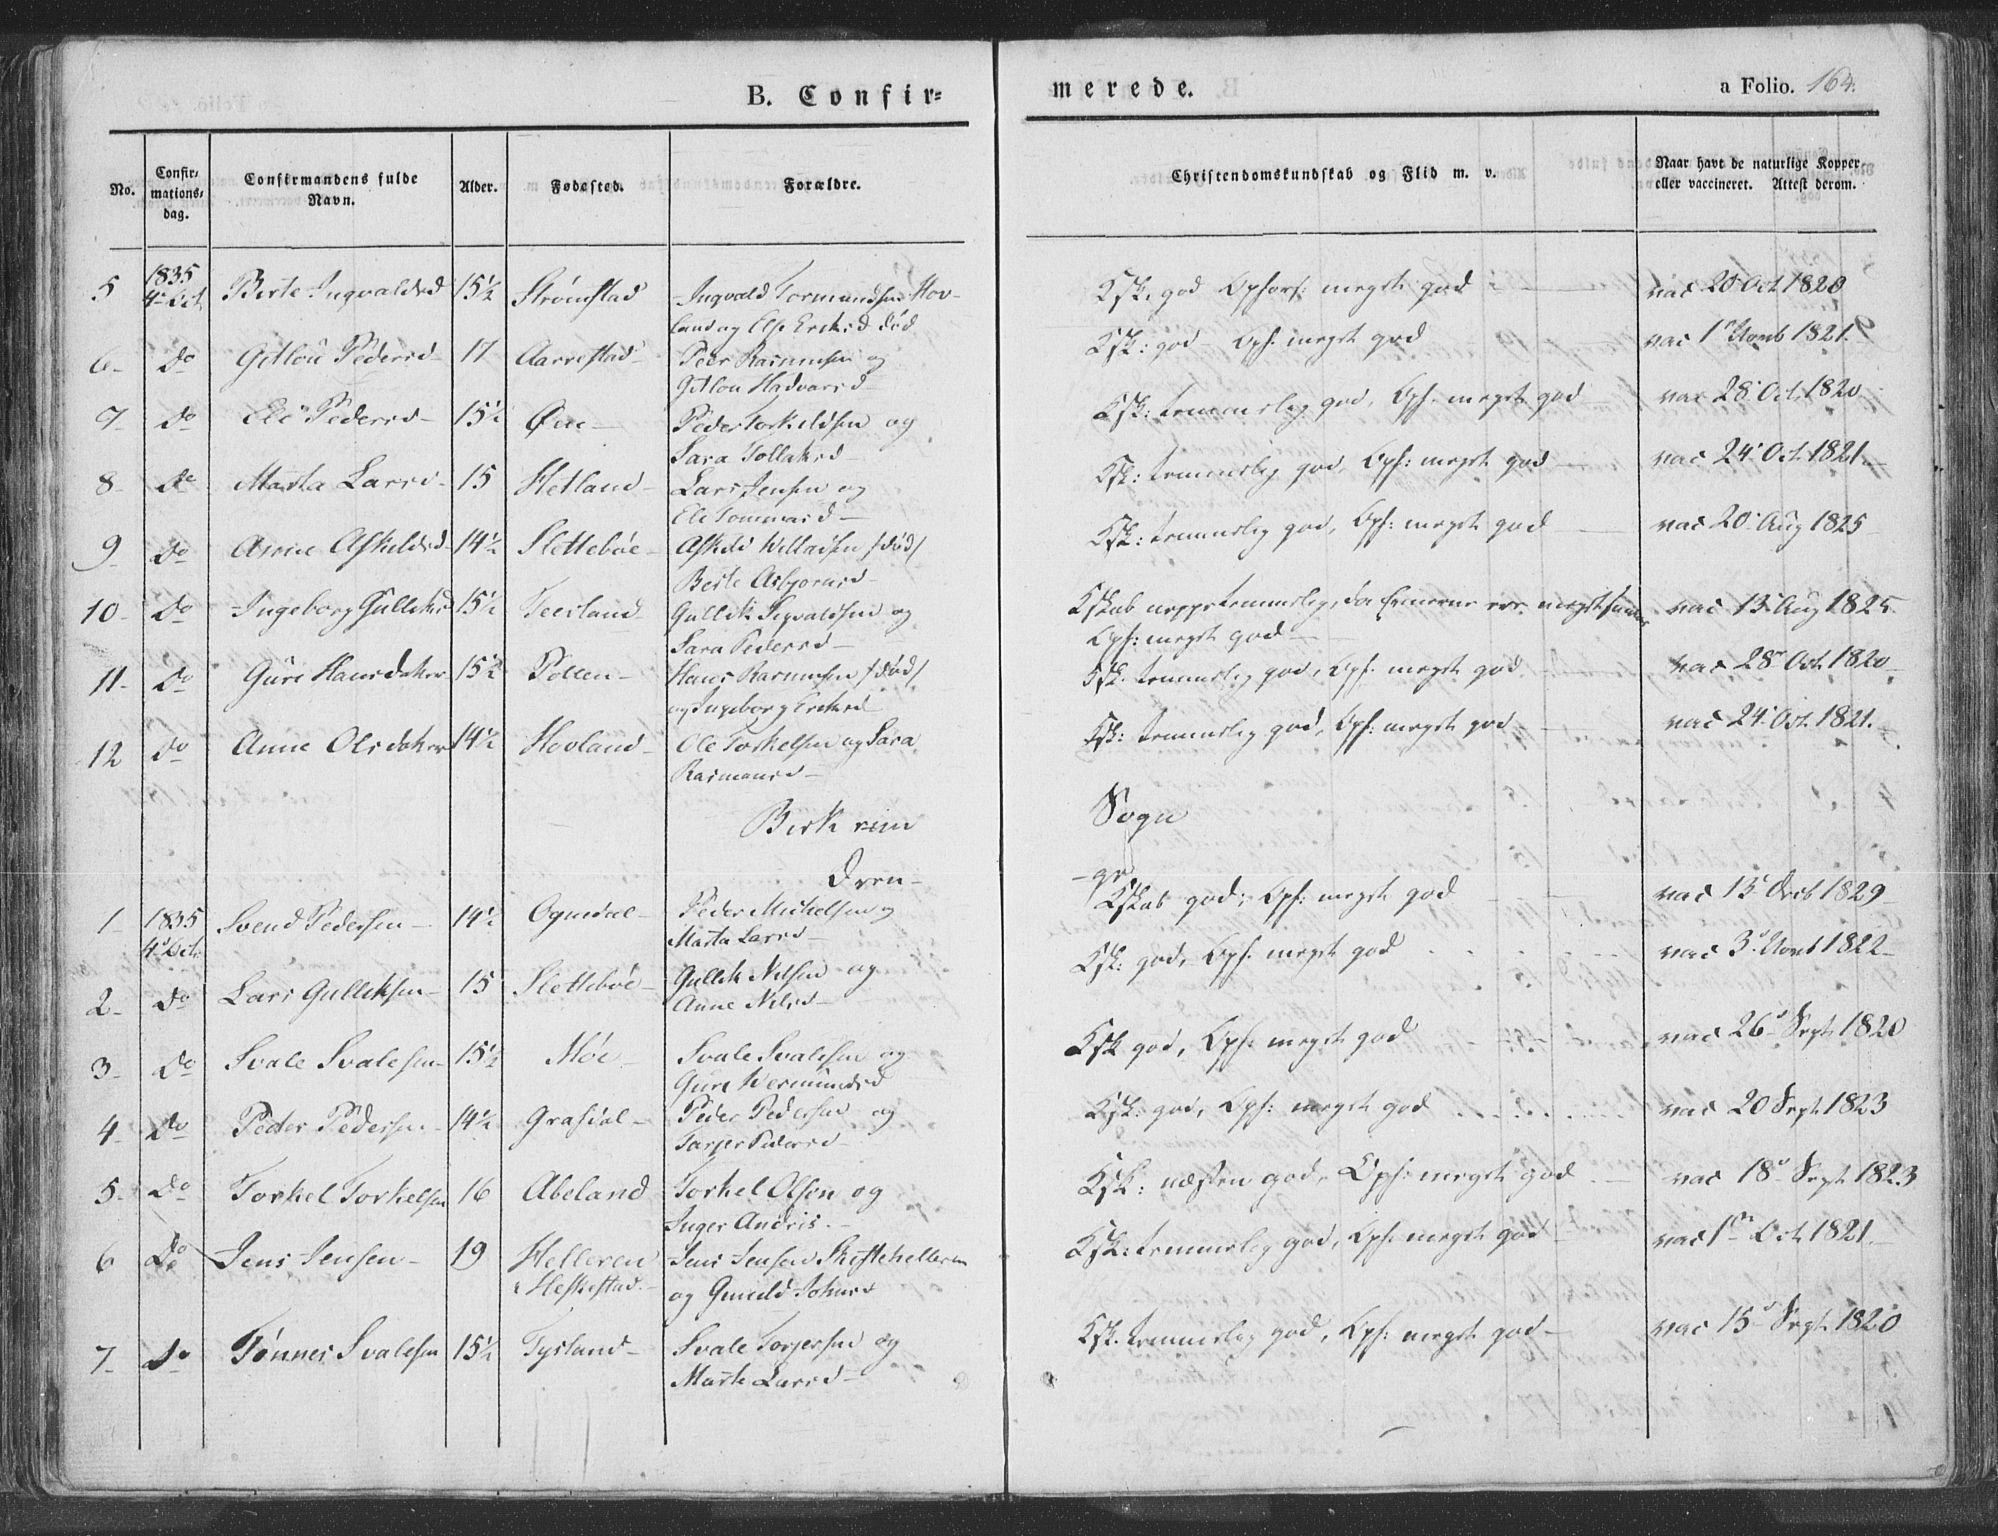 B. Confir-
merede.
a Folio. 164.
No.
Confir-
mations-
dag.
Confirmandens fulde
Navn.
Alder.
Fødested.
Forældre.
Christendomskundskab og Flid m. v.
Naar havt de naturlige Kopper
eller vaccineret. Attest derom.
5 1835 4de Oct. Berte Ingvaldsd 15½ Strømstad Ingvald Tormundsen Hov-
land og Else Ericksd død
Ksk. god Opførs: meget god vac 20 Oct 1820
6 do Gitlou Pedersd 17 Aarrestad Peer Rasmusen og
Gitlou Hadvarsd
Ksk: god Opf: meget god vac 1 Novb 1821.
7 do Eli Pedersd 15½ Øen Peder Torkildsen og
Sara Tollaksd
Ksk: temmelig god, Opf: meget god vac 28 Oct. 1820
8 do Marta Larsd 15 Hetland Lars Jensen og
Eli Tommasd
Ksk: temmelig god, Opf: meget god vac 24 Oct 1821
9 do Anne Askeldsd 14½ Slettebøe Askeld Willadsen /død/
Berte Asbjørnsd
Ksk: temmelig god, Opf: meget god vac 20 Aug 1825
10 do Ingeborg Gulliksd 15½ Teesland Gullik Sigvaldsen og
Sara Pedersd
Kskab neppe temmelig, da Evnerne ere meget svage
Opf: meget god vac 13 Aug 1825
11 do Guri Hansdoter 15½ Pollen Hans Rasmusen /død/
og Ingeborg Ericksd
Ksk. temmelig god, Opf. meget god vac 28 Oct. 1820
12 do Anne Olsdoter 14½ Hovland Ole Torkelsen og Sara
Rasmusd
Ksk: temmelig god, Opf: meget god vac 24 Oct. 1821.
Birkrem Sogn
Dren-ge
1 1835 4de Oct. Svend Pedersen 14½ Ognedal Peder Mickelsen og
Marta Larsd
Kskab god, Opf: meget god vac 15 Decb 1829
2 do Lars Gulliksen 15 Slettebøe Gullik Nilsen og
Anne Nilsd
Ksk: god, Opf. meget god vac 3 Novb 1822
3 do Svale Svalesen 15½ Møe Svale Svalesen og
Guri Wermundsd
Ksk god, Opf: meget god vac 26 Sept 1820
4 do Peder Pedersen 14½ Grasdal Peder Pedersen og
Tarjer Pedersd
Ksk: god, Opf: meget god vac 20 Sept 1823
5 do Torkel Torkelsen 16 Abeland Torkel Olsen og
Inger Andris.
Ksk: næsten god, Opf: meget god vac 18 Sept 1823
6 do Jens Jensen 19 Helleren
i Heskestad Jens Jensen Skiftehelleren
og Gunild Johnsd
Ksk: temmelig god, Opf: meget god vac 1 Oct 1821.
7 do Tønnes Svalesen 15½ Tysland Svale Torjersen og
Marte Larsd
Ksk. temmelig god, Opf: meget god vac 15 Sept 1820